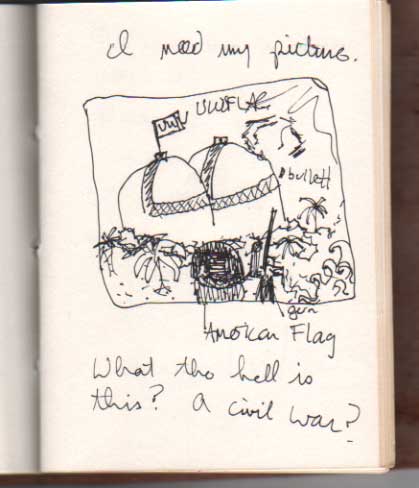 I need my picture.
UW FLAG
UW
bullett
gun
American Flag
What the hell is
this? A civil war?